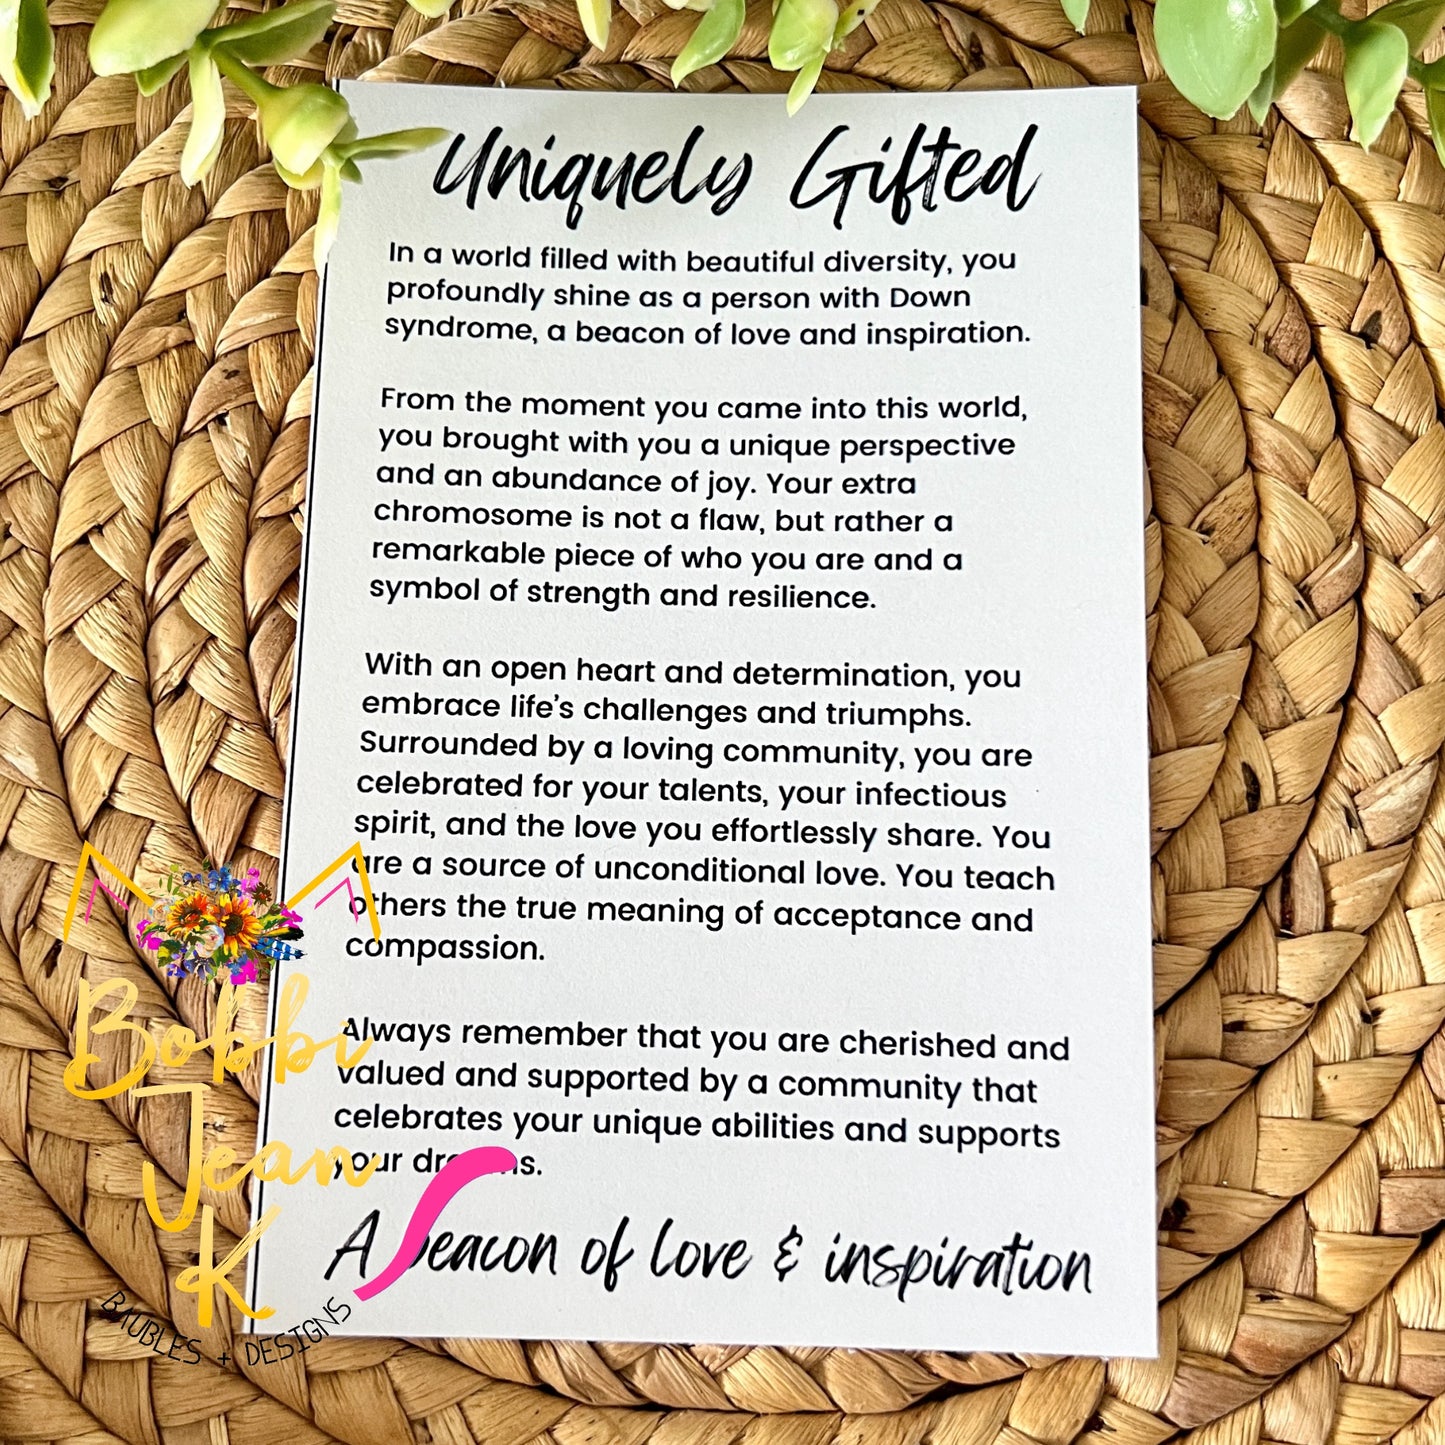 Uniquely Gifted
In a world filled with beautiful diversity, you
profoundly shine as a person with Down
syndrome, a beacon of love and inspiration.
From the moment you came into this world,
you brought with you a unique perspective
and an abundance of joy. Your extra
chromosome is not a flaw, but rather a
remarkable piece of who you are and a
symbol of strength and resilience.
With an open heart and determination, you
embrace life's challenges and triumphs.
Surrounded by a loving community, you are
celebrated for your talents, your infectious
spirit, and the love you effortlessly share. You
are a source of unconditional love. You teach
others the true meaning of acceptance and
compassion.
Always remember that you are cherished and
valued and supported by a community that
celebrates your unique abilities and supports
your dreams.
A beacon of love & inspiration
Bobbi
Jean
K
BAUBLES + DESIGNS